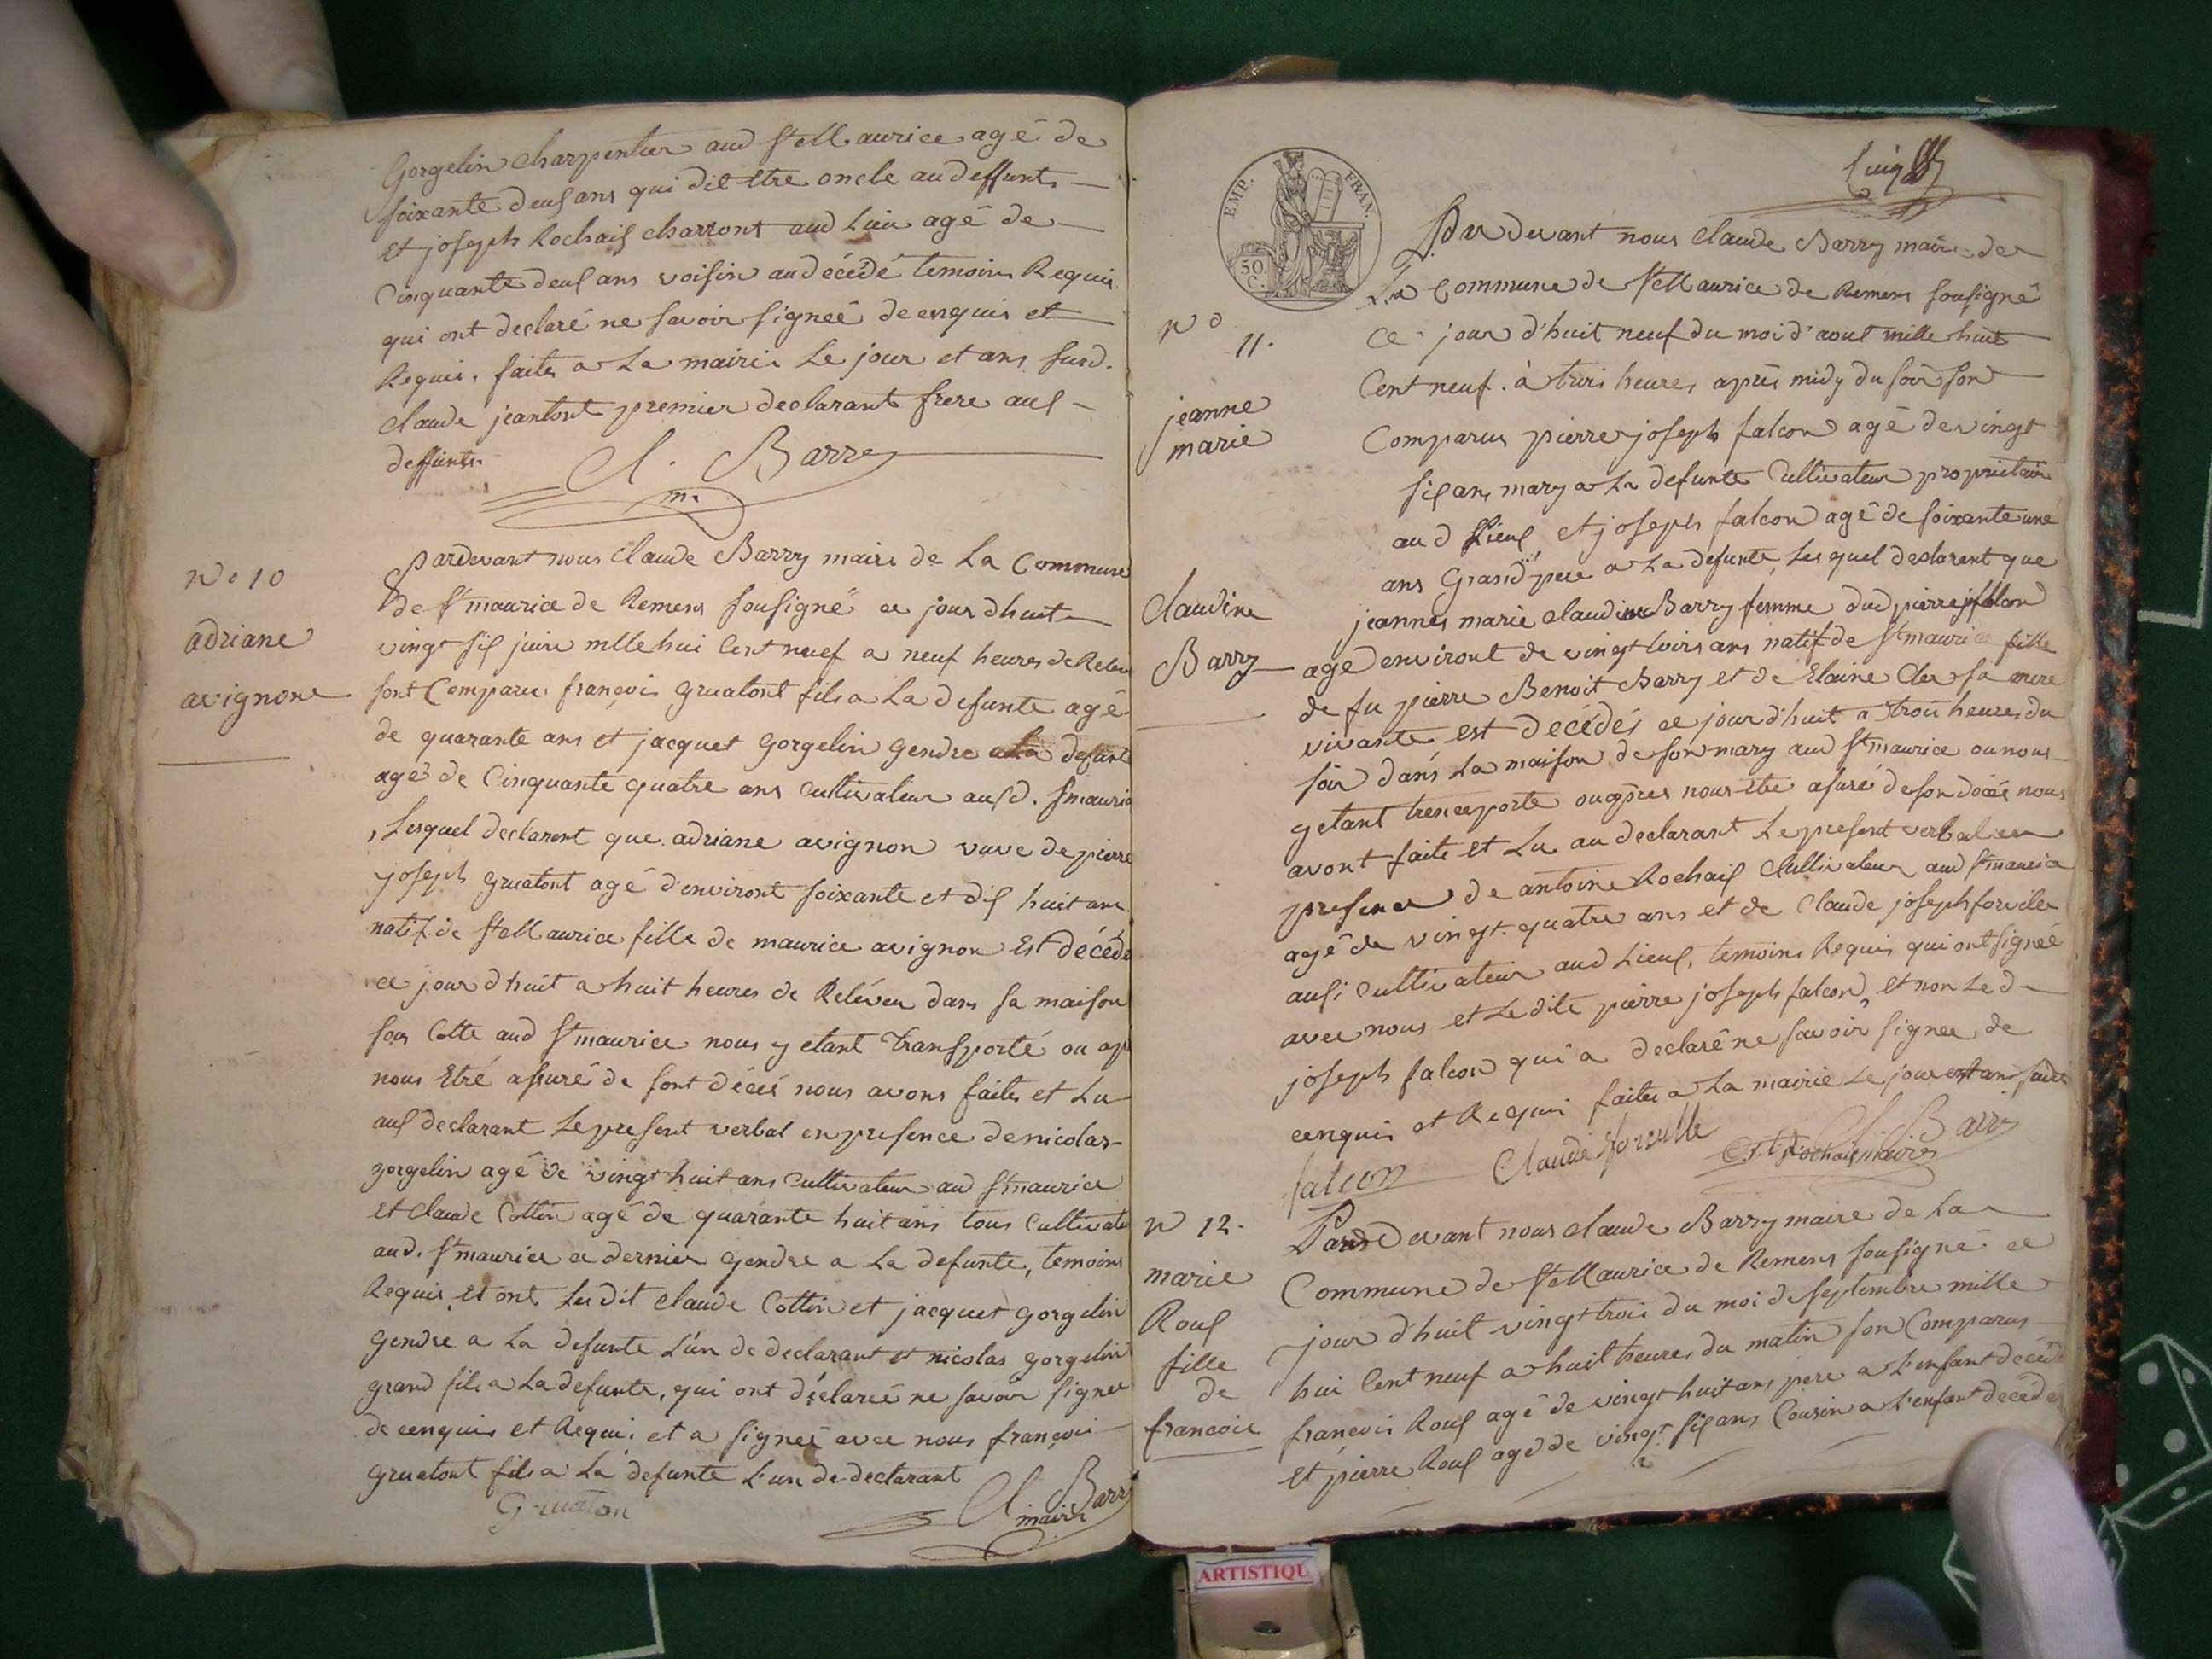 Gorgelin charpentier aud St Maurice agé de
soixante deuf ans qui dit etre oncle au deffunts
et joseph Rochaif charront aud Lieu agé de
Cinquante deuf ans voisin au décédé temoins Requis
qui ont declaré ne savoir signeé de enquis et
Requis. faites a La mairie Le jour et ans susd.
claude jeantont premier declarant frere auf
deffunts.
Cl. Barry
m.
n° 10
adriane
avignone
pardevant nous Claude Barry maire de La Commune
de St maurice de Remens sousigné ce jour dhuit
vingt sif juin mlle hui Cent neuf a neuf heures de Relev
sont Comparu françois gruatont fils a La defunte agé
de quarante ans et jacquet gorgelin gendre a La defunt
agé de Cinquante quatre ans Cultivateur ausd. St mauric
Lesquel declarent que adriane avignon vuve de pierre
joseph gruatont agé d'environt soixante et dif huit ans
natif de St Maurice fille de maurice avignon Est décédé
ce jour d huit a huit heures de Relèveu dans sa maison
sous Cotte aud St maurice nous y etant Transporté ou ap
nous Etré assuré de sont décié nous avons faites et Lu
auf declarant Le present verbal en presence de nicolas
gorgelin agé de vingt huit ans Cultivateur aud St maurice
et Claude Cottin agé de quarante huit ans tous Cultivate
aud. St maurice ce dernier gendre a La defunte, temoins
Requis, et ont Lesdit Claude Cottin et jacquet gorgelin
gendre a La defunte L'un de declarant et nicolas gorgelin
grand fils a La defunte, qui ont déclareé ne savoir signer
de cenquis et Requis et a signeé avec nous françois
gruatont fils a La defunte L'un de declarant
Gruaton
Cl. Barr
maire
EMP. FRAN.
50. C.
n°
11.
jeanne
marie
Claudine
Barry
Par devant nous Claude Barry maire de
La Commune de St Maurice de Remens sousigné
Ce jour d'huit neuf du moi d'aout mille huit
Cent neuf. à trois heures après midy du soir son
Comparus pierre joseph falcon agé de vingt
sif ans mary a La defunte Cultivateur propriétaire
aud Lieuf et joseph falcon agé de soixante une
ans Grand pere a La defunte, Lesquel declarent que
jeanne marie Claudine Barry femme dud pierre j falcon
agé environt de vingt toirs ans natif de St maurice fille
de fu pierre Benoit Barry et de Elaine Cler sa mere
vivante est decédés ce jour d'huit a trois heures du
soir dans La maison de son mary aud St maurice ou nous
y etant transporte ou après nous etre asuré de son décés nous
avont faite et Lu au declarant Le present verbal en
presence de antoine Rochaif Cultivateur aud St maurice
agé de vingt quatre ans et de Claude joseph forville
ausi Cultivateur aud Lieuf, temoins Requis qui ont signeé
avec nous et Le dite pierre joseph falcon, et non Le d
joseph falcon qui a declaré ne savoir signer de
cenquis et Requis faites a La mairie Le jour et an susdt
falcon Claude forville Rochaif Cl. Barry maire
n 12.
marie
Rouf
fille
de
francoie
Pardevant nous Claude Barry maire de La
Commune de St Maurice de Remens sousigné ce
jour d'huit vingt trois du moi de septembre mille
hui Cent neuf a huit heures du matin son Comparus
françois Rouf agé de vingt huit ans pere a L'enfant décédé
et pierre Rouf agé de vingt sif ans Cousin a L'enfant decédé
ARTISTIQU